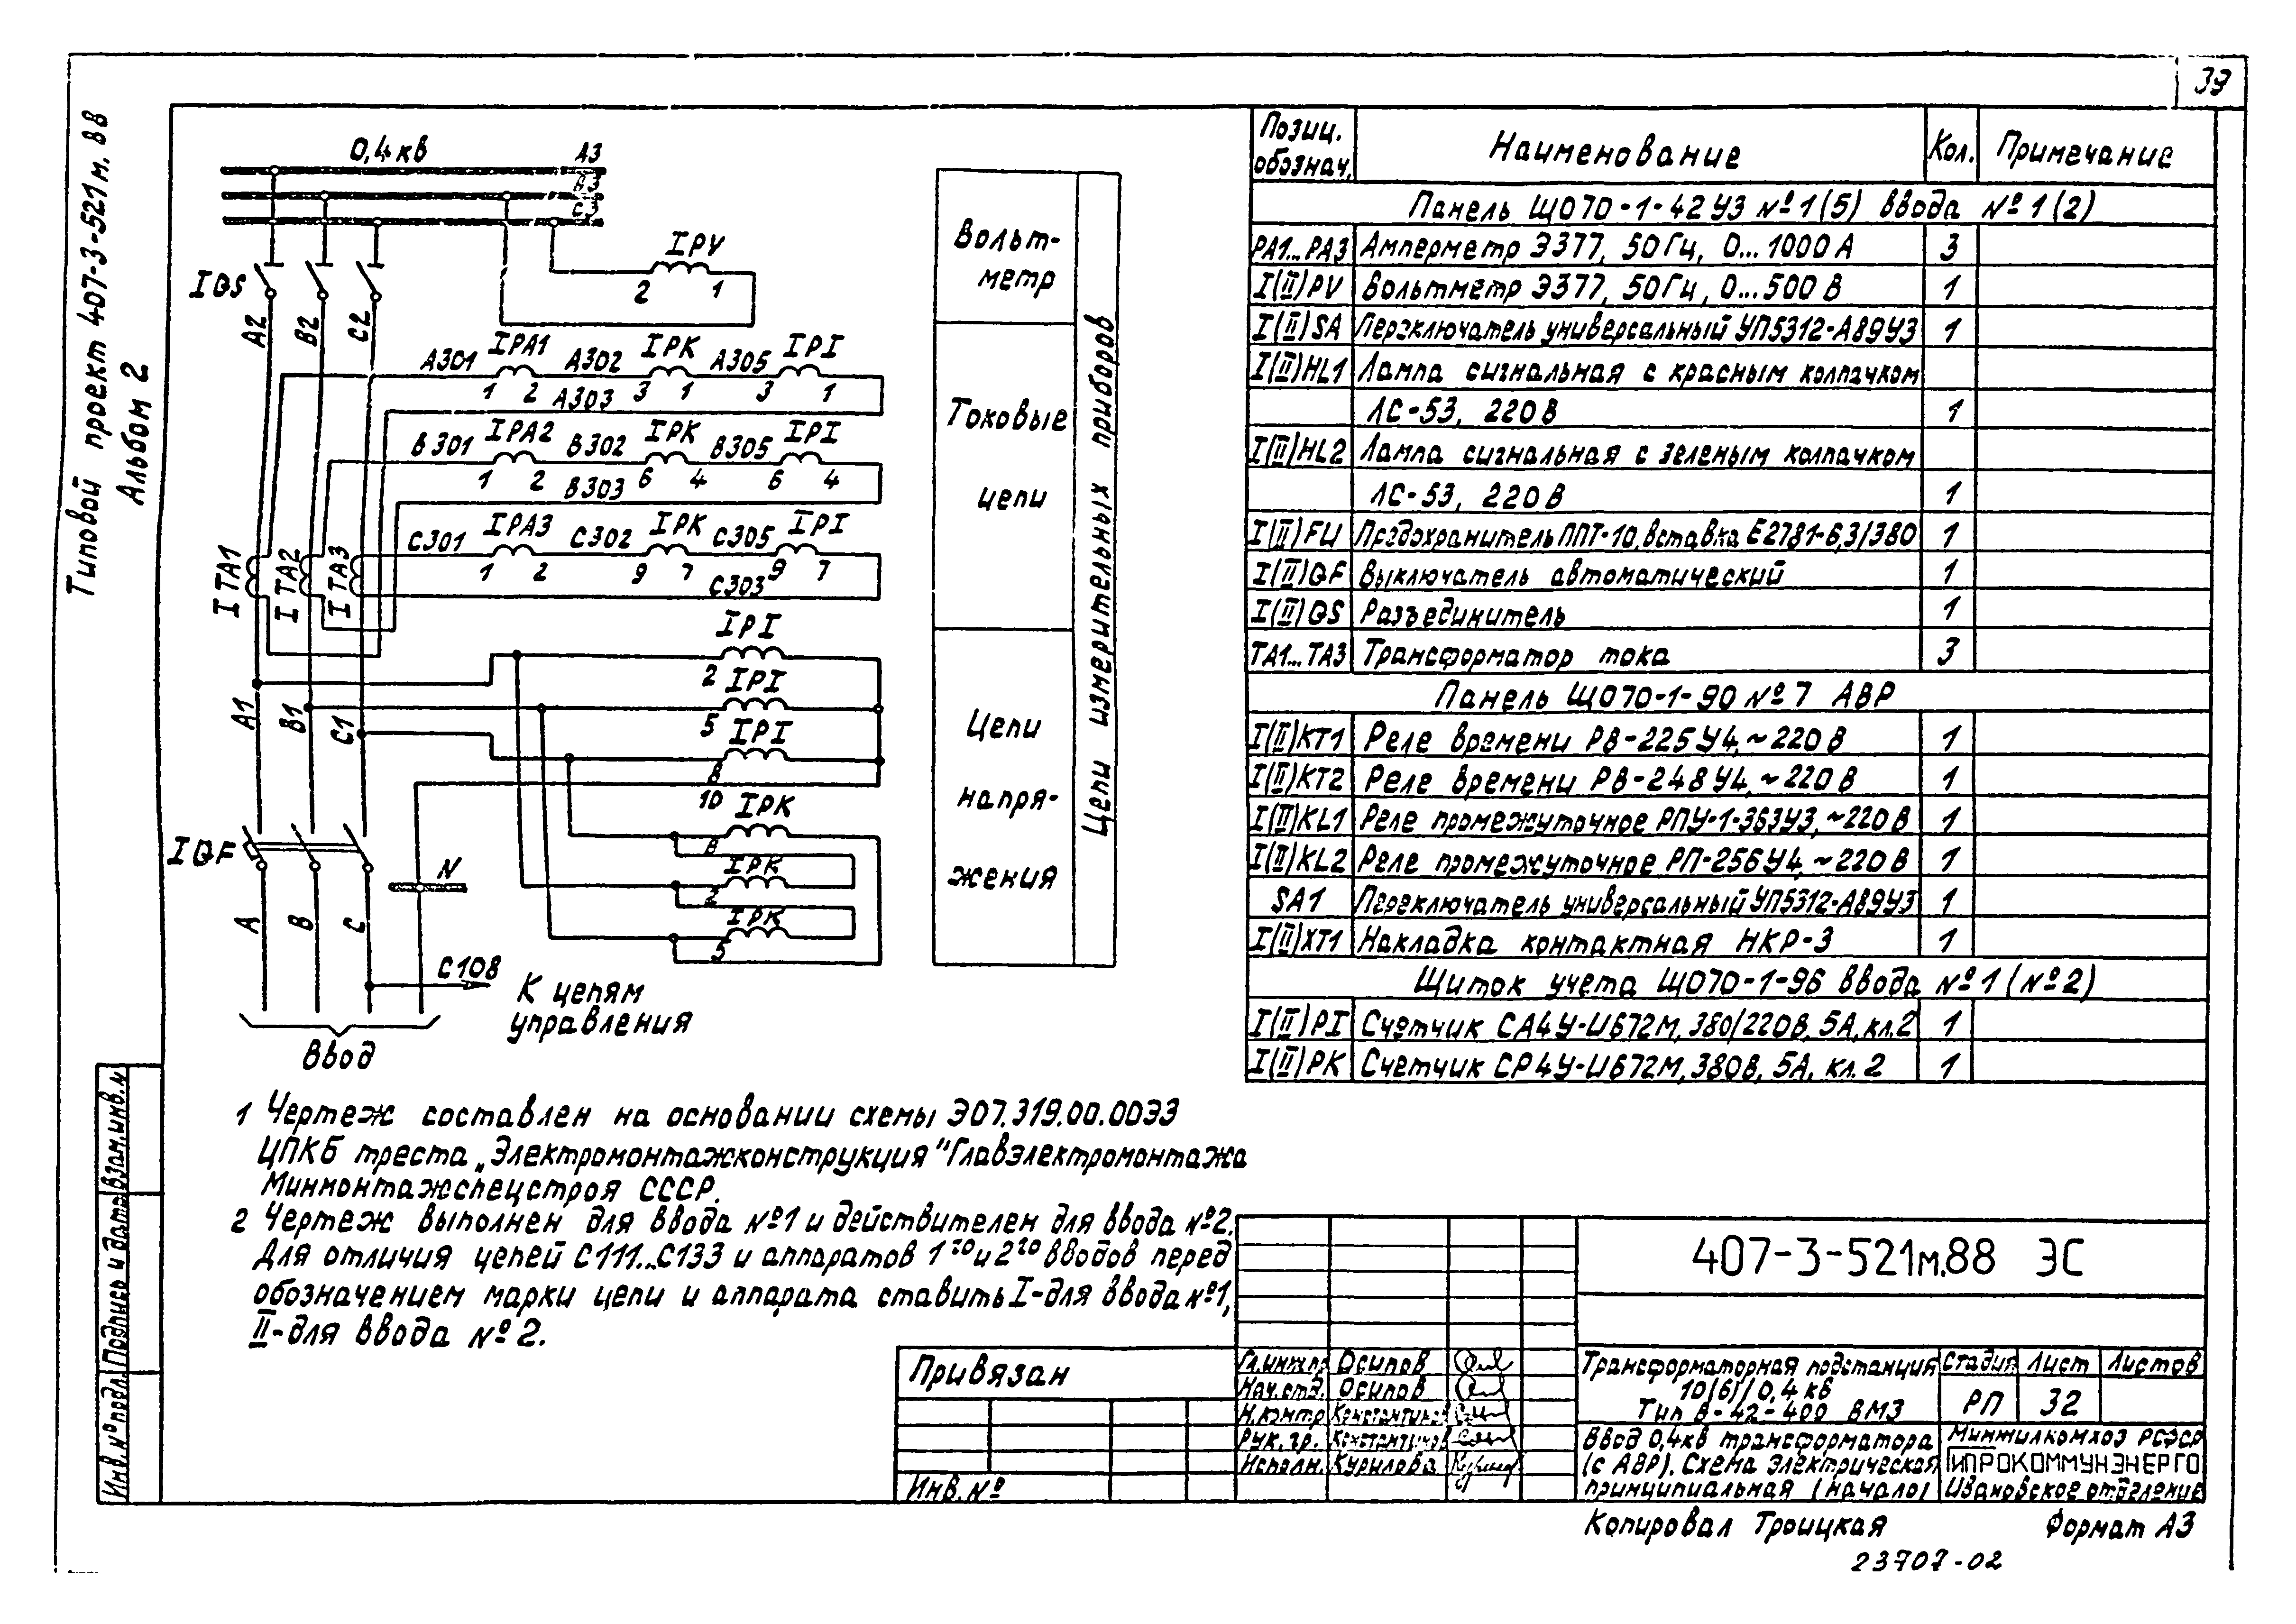 39
Типовой проект 407-3-521м.88
Альбом 2
0,4кв
А3
В3
С3
IPV
2 1
IQS
А2 В2 С2
А301 IPA1 А302 IPK А305 IPI
1 2 3 1 3 1
А303
В301 IPA2 В302 IPK В305 IPI
1 2 6 4 6 4
В303
С301 IPA3 С302 IPK С305 IPI
1 2 9 7 9 7
С303
ITA1 ITA2 ITA3
IPI
2 IPI
5 IPI
8
10 IPK
8
IPK
2
IPK
5
А1 В1 С1
IQF
N
А В С
С108
К цепям
управления
Ввод
Вольт-
метр
Токовые
цепи
Цепи
напря-
жения
Цепи измерительных приборов
Позиц. обознач. Наименование Кол. Примечание
Панель ЩО70-1-42У3 №1(5) ввода №1(2)
PA1...PA3 Амперметр Э377, 50Гц, 0...1000А 3
I(II)PV Вольтметр Э377, 50Гц, 0...500В 1
I(II)SA Переключатель универсальный УП5312-А89У3 1
I(II)HL1 Лампа сигнальная с красным колпачком
ЛС-53, 220В 1
I(II)HL2 Лампа сигнальная с зеленым колпачком
ЛС-53, 220В 1
I(II)FU Предохранитель ППТ-10, вставка Е2781-6,3/380 1
I(II)QF Выключатель автоматический 1
I(II)QS Разъединитель 1
TA1...TA3 Трансформатор тока 3
Панель ЩО70-1-90 №7 АВР
I(II)KT1 Реле времени РВ-225У4, ~220В 1
I(II)KT2 Реле времени РВ-248У4, ~220В 1
I(II)KL1 Реле промежуточное РПУ-1-363У3, ~220В 1
I(II)KL2 Реле промежуточное РП-256У4, ~220В 1
SA1 Переключатель универсальный УП5312-А89У3 1
I(II)XT1 Накладка контактная НКР-3 1
Щиток учета ЩО70-1-96 ввода №1 (№2)
I(II)PI Счетчик СА4У-И672М, 380/220В, 5А, кл.2 1
I(II)PK Счетчик СР4У-И672М, 380В, 5А, кл.2 1
1 Чертеж составлен на основании схемы Э07.319.00.00Э3
ЦПКБ треста „Электромонтажконструкция" Главэлектромонтажа
Минмонтажспецстроя СССР.
2 Чертеж выполнен для ввода №1 и действителен для ввода №2.
Для отличия цепей С111...С133 и аппаратов 1го и 2го вводов перед
обозначением марки цепи и аппарата ставить I-для ввода №1,
II-для ввода №2.
Взам.инв.№
Подпись и дата
Инв.№ подл.
Привязан
Инв.№
Гл.инж.пр Осипов
Нач.отд. Осипов
Н.контр Константинов
Рук.гр. Константинов
Исполн. Курилова
407-3-521м.88 ЭС
Трансформаторная подстанция
10(6)/0,4 кв
Тип В-42-400 ВМ3
Стадия Лист Листов
РП 32
Ввод 0,4кв трансформатора
(с АВР). Схема электрическая
принципиальная (начало)
Минжилкомхоз РСФСР
ГИПРОКОММУНЭНЕРГО
Ивановское отделение
Копировал Троицкая Формат А3
23707-02